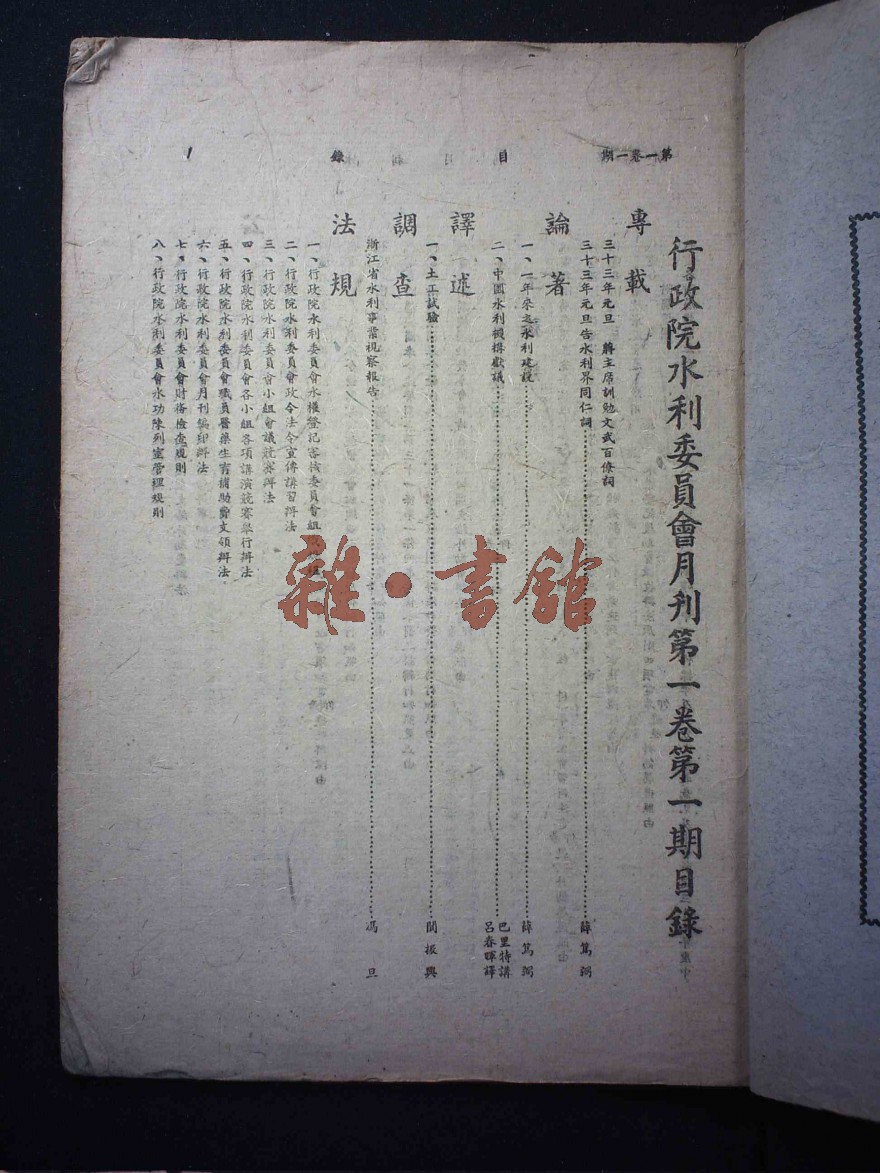 第一卷一期
目
錄
1
行政院水利委員會月刊第一卷第一期目錄
專載
三十三年元旦 蔣主席訓勉文武百僚詞
三十三年元旦告水利界同仁詞 薛篤弼
論著
一、一年來之水利建設 薛篤弼
二、中國水利機構獻議 巴里特講 呂春暉譯
譯述
一、土工試驗 閻振興
調查
浙江省水利事業視察報告 馮旦
法規
一、行政院水利委員會水權登記審核委員會組
二、行政院水利委員會政令法令宣傳講習辦法
三、行政院水利委員會小組會議競賽辦法
四、行政院水利委員會各小組各項講演競賽舉行辦法
五、行政院水利委員會職員醫藥生育補助費支領辦法
六、行政院水利委員會月刊編印辦法
七、行政院水利委員會財務檢查規則
八、行政院水利委員會水功陳列室管理規則
雜·書館